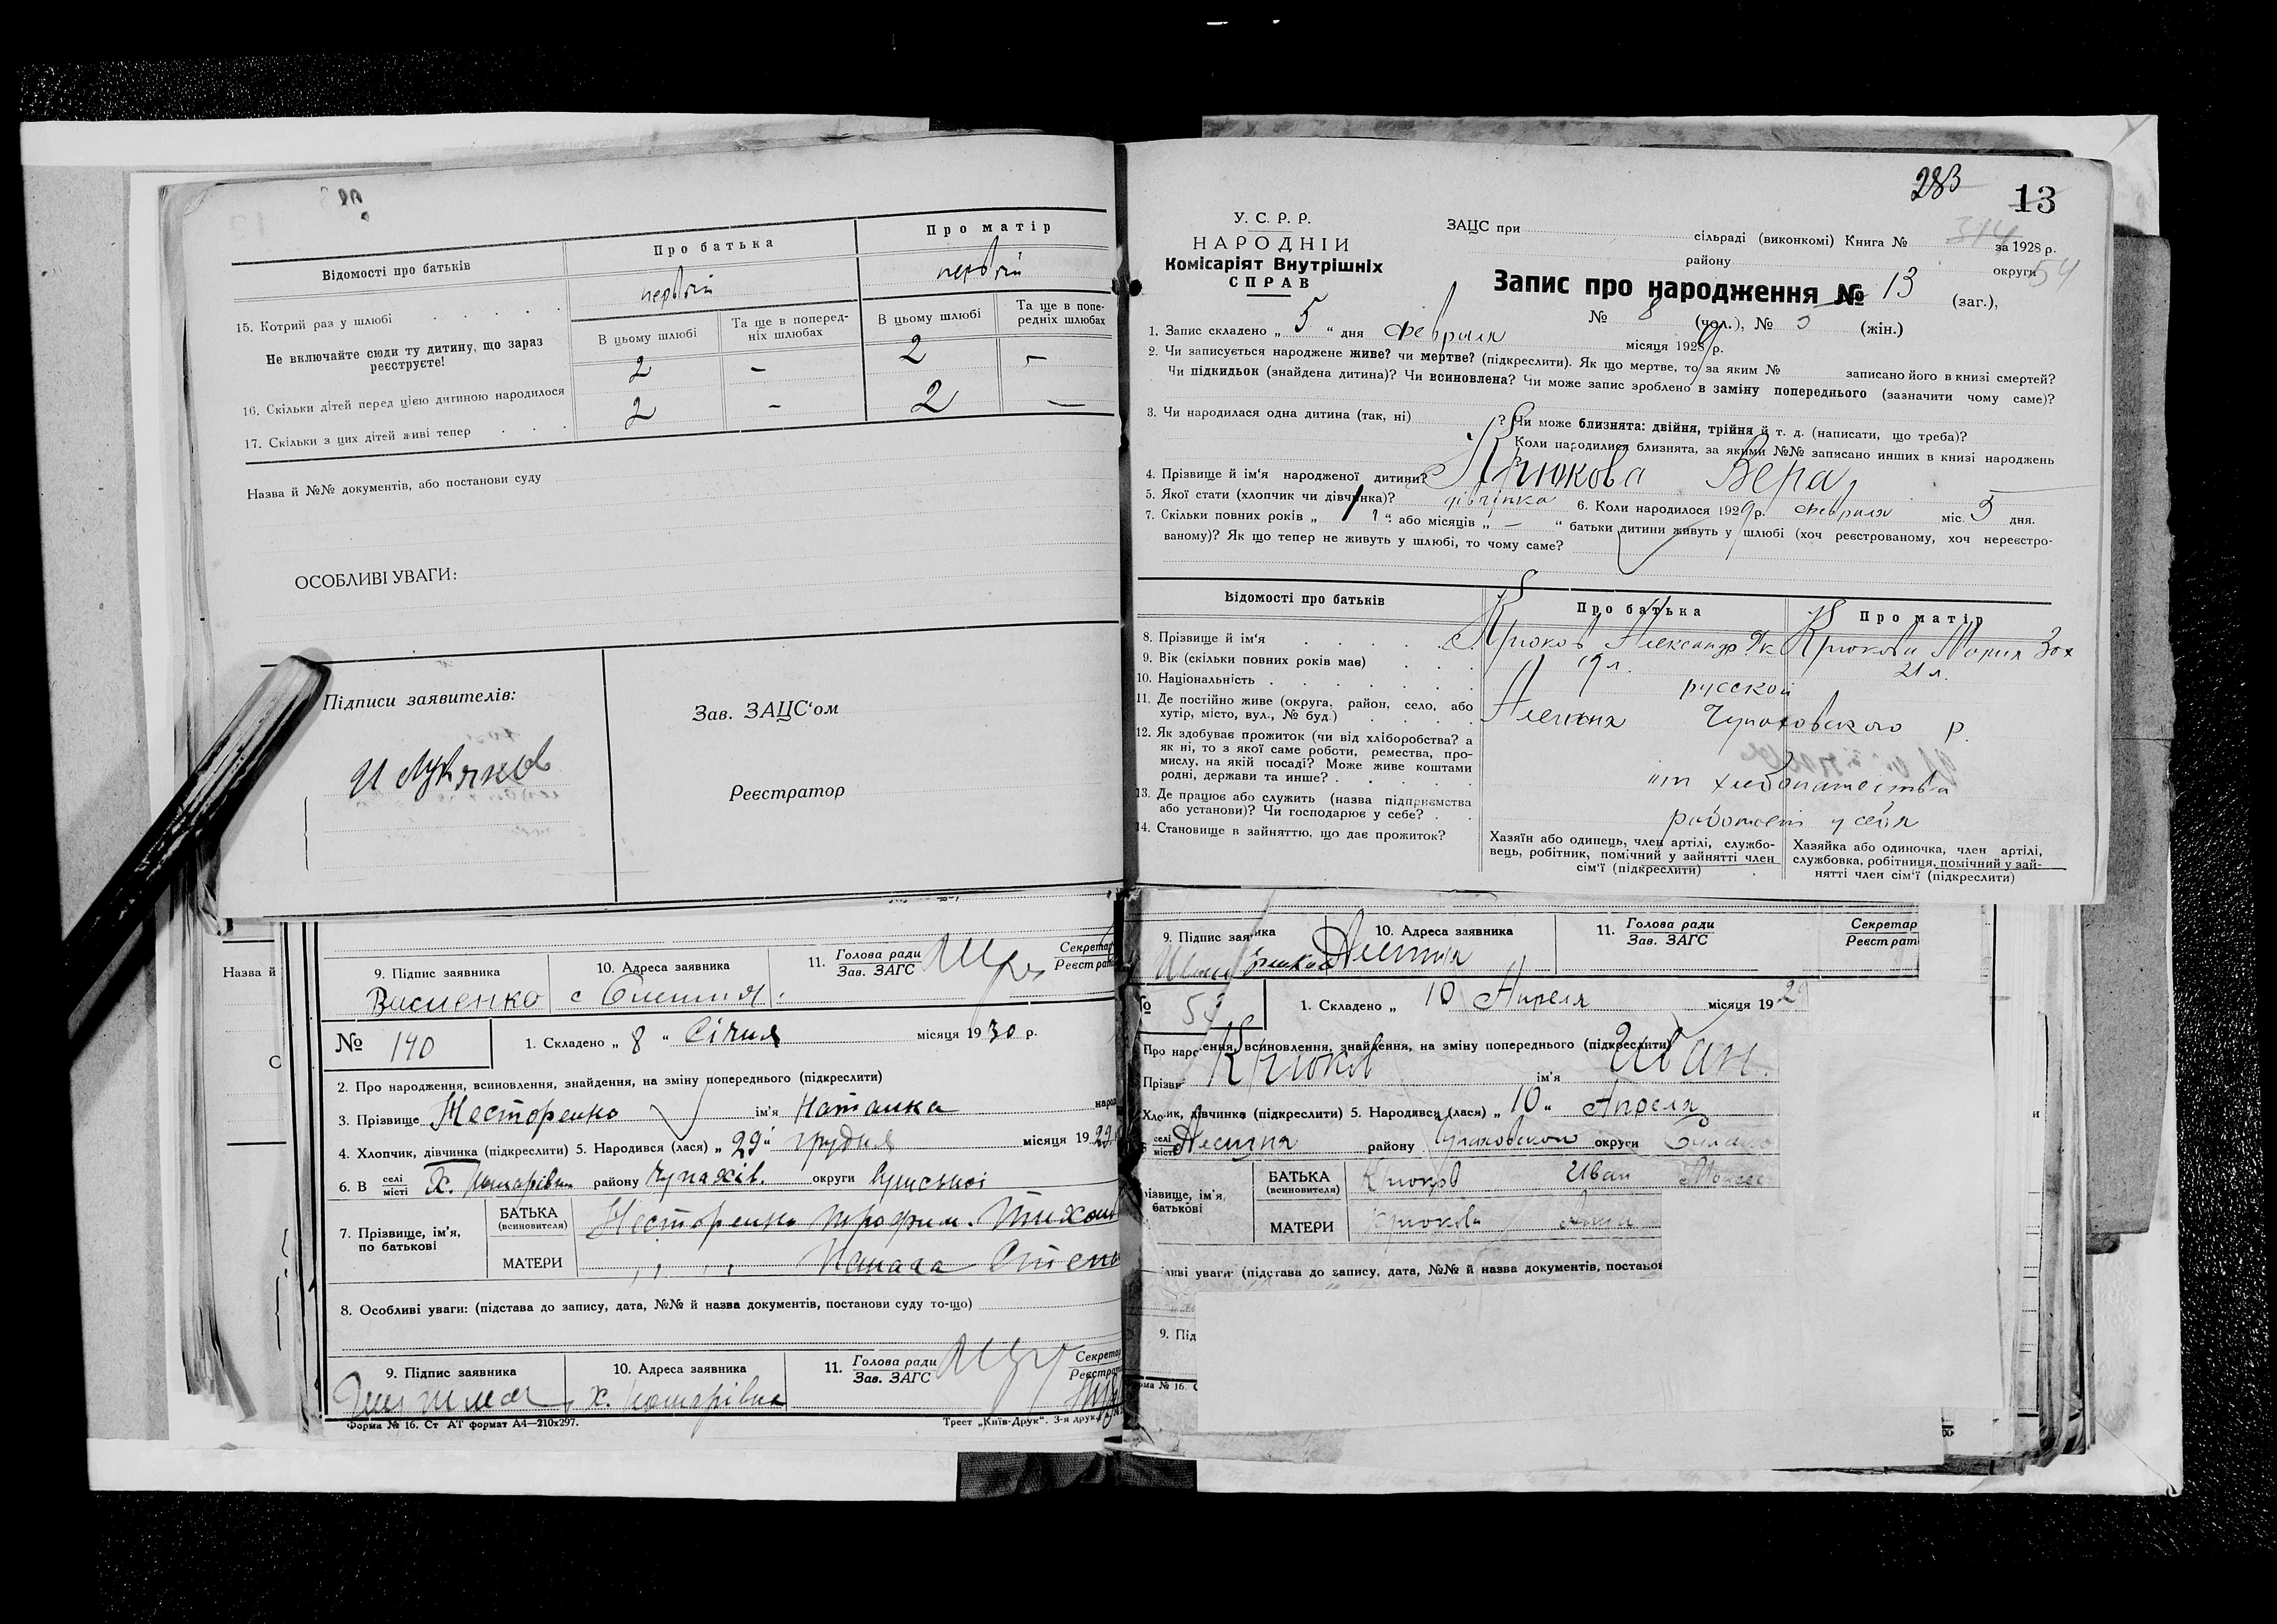 Відомості про батьків
Про батька
Про матір
15. Котрий раз у шлюбі
первий
первий
Не включайте сюди ту дитину, що зараз реєструєте!
В цьому шлюбі
Та ще в поперед-
ніх шлюбах
В цьому шлюбі
Та ще в попе-
редніх шлюбах
16. Скільки дітей перед цією дитиною народилося
2 – 2 –
17. Скільки з цих дітей живі тепер
2 – 2 –
Назва й №№ документів, або постанови суду
ОСОБЛИВІ УВАГИ:
Підписи заявителів:
Зав. ЗАЦС'ом
Реєстратор
Назва й
9. Підпис заявника
10. Адреса заявника
11. Голова ради
Зав. ЗАГС
Василенко
№ 140
1. Складено „ 8 “ Січня місяця 1930 р.
2. Про народження, всиновлення, знайдення, на зміну попереднього (підкреслити)
3. Прізвище Несторенко ім'я Наталка
4. Хлопчик, дівчинка (підкреслити) 5. Народився (лася) „ 29 “ грудня місяця 1929
6. В селі
місті
району Чупахів. округи Сумської
7. Прізвище, ім'я,
по батькові
БАТЬКА
(всиновителя)
Несторенко Трофим
МАТЕРИ
8. Особливі уваги: (підстава до запису, дата, №№ й назва документів, постанови суду то-що)
9. Підпис заявника
10. Адреса заявника
11. Голова ради
Зав. ЗАГС
Форма № 16. Ст АТ формат А4—210х297.
Трест „Київ-Друк“. 3-я друк.
283
13
314
54
У. С. Р. Р.
НАРОДНІЙ
Комісаріят Внутрішніх
СПРАВ
ЗАЦС при
сільраді (виконкомі) Книга № за 1928 р.
району округи
Запис про народження № 13 (заг.),
№ 8 (чол.), № 5 (жін.)
1. Запис складено „ 5 “ дня Февраля місяця 1929 р.
2. Чи записується народжене живе? чи мертве? (підкреслити). Як що мертве, то за яким № записано його в книзі смертей?
Чи підкидьок (знайдена дитина)? Чи всиновлена? Чи може запис зроблено в заміну попереднього (зазначити чому саме)?
3. Чи народилася одна дитина (так, ні) ? Чи може близнята: двійня, трійня й т. д. (написати, що треба)?
Коли народилися близнята, за якими №№ записано инших в книзі народжень
4. Прізвище й ім'я народженої дитини? Крюкова Вера
5. Якої стати (хлопчик чи дівчинка)? дівчінка 6. Коли народилося 1929 р. Февраля міс. 5 дня.
7. Скільки повних років „ 1 “? або місяців „ — “ батьки дитини живуть у шлюбі (хоч реєстрованому, хоч нереєстро-
ваному)? Як що тепер не живуть у шлюбі, то чому саме?
Відомості про батьків
Про батька
Про матір
8. Прізвище й ім'я
Крюков Александр Як
Крюкова Мария Зах
9. Вік (скільки повних років має)
19 л.
21 л.
10. Національність
русской
11. Де постійно живе (округа, район, село, або
хутір, місто, вул., № буд.)
Чупаховского р.
12. Як здобуває прожиток (чи від хліборобства? а
як ні, то з якої саме роботи, ремества, про-
мислу, на якій посаді? Може живе коштами
родні, держави та инше?
от хлебопашества
13. Де працює або служить (назва підприємства
або установи)? Чи господарює у себе?
работает у себя
14. Становище в зайняттю, що дає прожиток?
Хазяїн або одинець, член артілі, службо-
вець, робітник, помічний у зайнятті член
сім'ї (підкреслити)
Хазяйка або одиночка, член артілі,
службовка, робітниця, помічний у зай-
нятті член сім'ї (підкреслити)
10. Адреса заявника
11. Голова ради
Зав. ЗАГС
Секретар
1. Складено „ 10 Апреля місяця 1929
всиновлення, знайдення, на зміну попереднього (підкреслити)
Крюков ім'я Иван
дівчинка (підкреслити) 5. Народився (лася) „ 10 “ Апреля
селі
місті
району округи
БАТЬКА
(всиновителя)
Крюков Иван
МАТЕРИ
Крюкова
уваги (підстава до запису, дата, №№ й назва документів,
9. Під